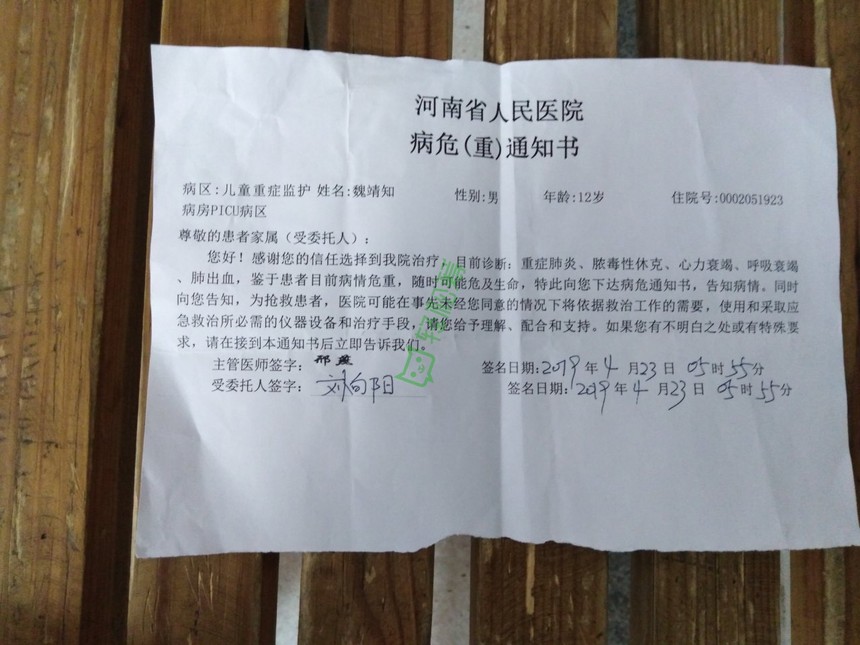 河南省人民医院
病危(重)通知书
病区:儿童重症监护 姓名:魏靖知 性别:男 年龄:12岁 住院号:0002051923
病房PICU病区
尊敬的患者家属（受委托人）:
您好！感谢您的信任选择到我院治疗，目前诊断：重症肺炎、脓毒性休克、心力衰竭、呼吸衰竭
、肺出血，鉴于患者目前病情危重，随时可能危及生命，特此向您下达病危通知书，告知病情。同时
向您告知，为抢救患者，医院可能在事先未经您同意的情况下将依据救治工作的需要，使用和采取应
急救治所必需的仪器设备和治疗手段，请您给予理解、配合和支持。如果您有不明白之处或有特殊要
求，请在接到本通知书后立即告诉我们。
主管医师签字: 邢燕 签名日期:2019年4月23日05时55分
受委托人签字: 刘向阳 签名日期:2019年4月23日05时55分
轻松筹